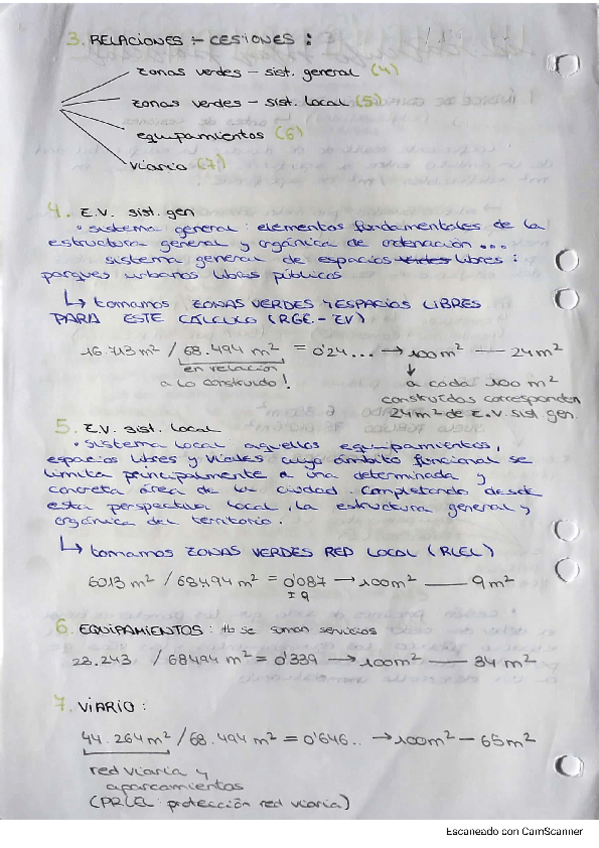 3. RELACIONES :- CESIONES :
zonas verdes - sist. general (4)
zonas verdes - sist. local (5)
equipamientos (6)
viario (7)
4. Z.V. sist. gen
· sistema general: elementos fundamentales de la
estructura general y orgánica de ordenación ...
sistema general de espacios verdes libres :
parques urbanos libres públicos
↳ tomamos ZONAS VERDES Y ESPACIOS LIBRES
PARA ESTE CÁLCULO (RGE.- ZV)
16.713 m² / 68.494 m² = 0'24... → 100 m² — 24 m²
en relación
a lo construido !
a cada 100 m²
construidos corresponden
24 m² de Z.V. sist gen.
5. Z.V. sist. local
· sistema local aquellos equipamientos,
espacios libres y viales cuyo ámbito funcional se
limita principalmente a una determinada y
concreta área de la ciudad. Completando desde
esta perspectiva local, la estructura general y
orgánica del territorio.
↳ tomamos ZONAS VERDES RED LOCAL (RLEL)
6013 m² / 68494 m² = 0'087 → 100 m² — 9 m²
± 9
6. EQUIPAMIENTOS : tb se suman servicios
23.243 / 68494 m² = 0'339 → 100 m² — 34 m²
7. VIARIO :
44.264 m² / 68.494 m² = 0'646.. → 100 m² - 65 m²
red viaria y
aparcamientos
(PRLEL: protección red viaria)
Escaneado con CamScanner